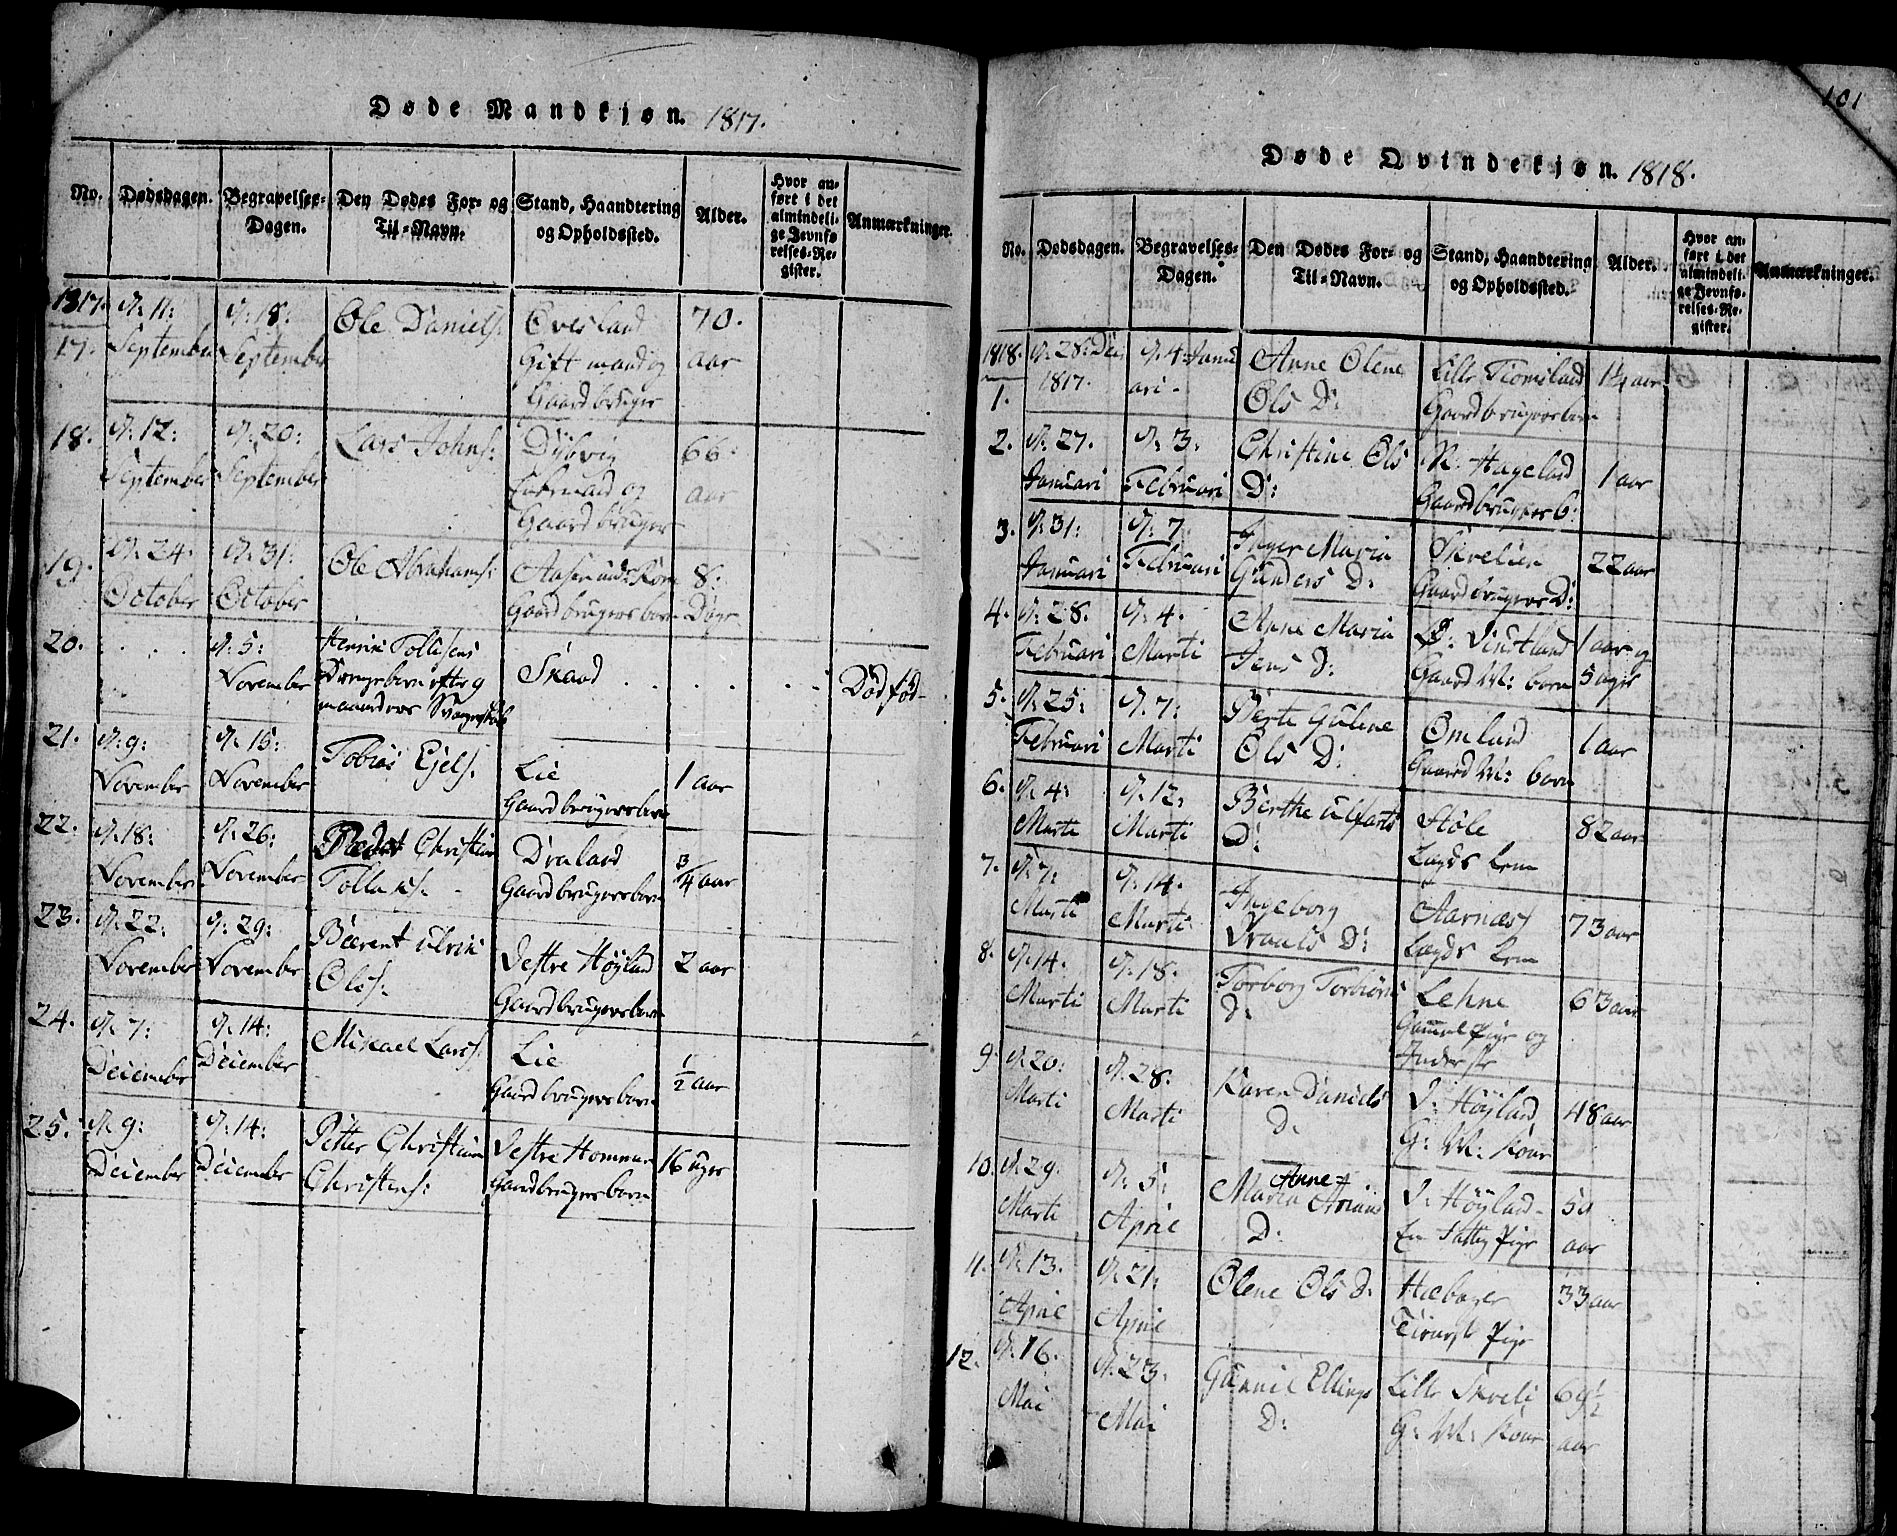 Døde Mandkjøn. 1817.
No.
Dødsdagen.
Begravelses-
Dagen.
Den Dødes For- og
Til-Navn.
Stand, Haandtering
og Opholdssted.
Alder.
Hvor an-
ført i det
almindeli-
ge Jevnfø-
relses-Re-
gister.
Anmærkninger.
1817.
17.
d. 11:
September
d. 18:
September
Ole Daniels:
Ovesland
Gift mand og
Gaardbruger
70.
aar
18.
d. 12:
September
d. 20:
September
Lars Johns:
Dybvig
Enkemand og
Gaardbruger
66.
aar
19.
d. 24.
October
d. 31:
October
Ole Abrahams:
Gaardbrugers barn
8.
Dage
20.
d. 5:
November
Henric Tollefsens
Drengebarn efter 9
maaneders Svangerskab
Skaad
Dødfød
21.
d. 9:
November
d. 15:
November
Tobias Ejels:
Lie
Gaardbrugers barn
1 aar
22.
d. 18:
November
d. 26:
November
Peder Christian
Tollefs:
Gaardbrugers barn
3/4 aar
23.
d. 22:
November
d. 29:
November
Berent Ulric
Ols:
Vestre Høyland
Gaardbrugers barn
2 aar
24.
d. 7:
December
d. 14:
December
Mikael Lars:
Lie
Gaardbrugers barn
1/2 aar
25.
d. 9:
December
d. 14:
December
Petter Christian
Christens:
Vestre Homme
Gaardbrugers barn
16 uger
101
Døde Qvindekjøn. 1818.
No.
Dødsdagen.
Begravelses-
Dagen.
Den Dødes For- og
Til-Navn.
Stand, Haandtering
og Opholdssted.
Alder.
Hvor an-
ført i det
almindeli-
ge Jevnfø-
relses-Re-
gister.
Anmærkninger.
1818.
1.
d. 28: Dec
1817.
d. 4: Janu
ari
Anne Olene
Ols D:
Lille Tiomsland
Gaardbrugers barn
1 1/4 aar
2.
d. 27.
Januari
d. 3.
Februari
Christine Ols
D:
N: Hageland
Gaardbrugers b:
1 aar
3.
d. 31:
Januari
d. 7.
Februari
Inger Maria
Gunders D:
Gaardbrugers D:
22 aar
4.
d. 28.
Februari
d. 4.
Marti
Anne Maria
Jens D:
Gaard M: barn
1 aar og
5 uger
5.
d. 25:
Februari
d. 7:
Marti
Berte Guline
Ols D:
Omland
Gaard M: barn
1 aar
6.
d. 4:
Marti
d. 12:
Marti
Berthe
D:
Høle
Lægds Lem
82 aar
7.
d. 7:
Marti
d. 14.
Marti
Ingeborg
D:
Aarnæs
Lægds Lem
73 aar
8.
d. 14.
Marti
d. 18.
Marti
Torborg Torbiørns
D:
Lehne
Gammel Pige og
Inderste
63 aar
9.
d. 20:
Marti
d. 28.
Marti
Karen Daniels
D.
V: Høyland
G: M: Kone
48 aar
10.
d. 29.
Marti
d. 5:
April
Anne
Maria
D:
V: Høyland
En Fattig Pige
50
aar
11.
d. 13.
April
d. 21:
April
Olene Ols D.
Hæbager
Pige
33 aar
12.
d. 16.
Mai
d. 23.
Mai
Gunnil Ellings
D:
Lille Skveli
G: M: Kone
69 1/2
aar